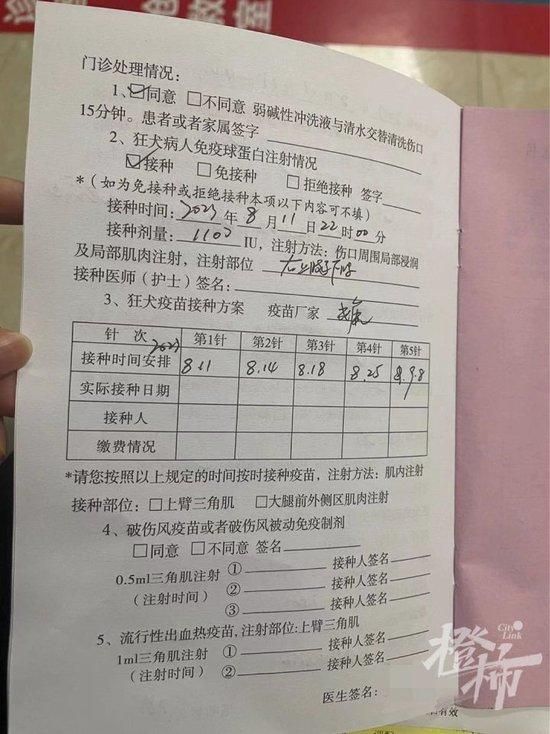 门诊处理情况：
1、☑同意 □不同意 弱碱性冲洗液与清水交替清洗伤口
15分钟。患者或者家属签字
2、狂犬病人免疫球蛋白注射情况
☑接种 □免接种 □拒绝接种 签字
*（如为免接种或拒绝接种本项以下内容可不填）
接种时间：2023年8月11日22时00分
接种剂量：1100 IU，注射方法：伤口周围局部浸润
及局部肌肉注射，注射部位
接种医师（护士）签名：
3、狂犬疫苗接种方案 疫苗厂家
针 次 第1针 第2针 第3针 第4针 第5针
2023
接种时间安排 8.11 8.14 8.18 8.25 9.8
实际接种日期
接种人
缴费情况
*请您按照以上规定的时间按时接种疫苗，注射方法：肌内注射
接种部位：□上臂三角肌 □大腿前外侧区肌肉注射
4、破伤风疫苗或者破伤风被动免疫制剂
□同意 □不同意 签名
0.5ml三角肌注射 ① 接种人签名
（注射时间） ② 接种人签名
③ 接种人签名
5、流行性出血热疫苗，注射部位:上臂三角肌
1ml三角肌注射 ① 接种人签名
（注射时间） ② 接种人签名
医生签名：
有效
City Link
橙柿